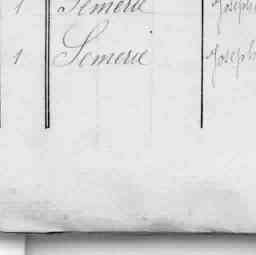 1 Semerie Joseph
1 Semerie Joseph